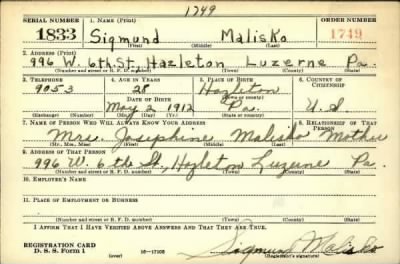 1749
SERIAL NUMBER 1. NAME (Print) ORDER NUMBER
1833 Sigmund Malisko 1749
(First) (Middle) (Last)
2. ADDRESS (Print)
996 W. 6th St. Hazleton Luzerne Pa.
(Number and street or R. F. D. number) (Town) (County) (State)
3. TELEPHONE 4. AGE IN YEARS 5. PLACE OF BIRTH 6. COUNTRY OF CITIZENSHIP
9053 28 Hazleton
DATE OF BIRTH (Town or county)
May 2 1912 Pa. U.S
(Exchange) (Number) (Mo.) (Day) (Yr.) (State or country)
7. NAME OF PERSON WHO WILL ALWAYS KNOW YOUR ADDRESS 8. RELATIONSHIP OF THAT PERSON
Mrs. Josephine Malisko Mother
(Mr., Mrs., Miss) (First) (Middle) (Last)
9. ADDRESS OF THAT PERSON
996 W. 6th St., Hazleton Luzerne Pa.
(Number and street or R. F. D. number) (Town) (County) (State)
10. EMPLOYER'S NAME
11. PLACE OF EMPLOYMENT OR BUSINESS
(Number and street or R. F. D. number) (Town) (County) (State)
I AFFIRM THAT I HAVE VERIFIED ABOVE ANSWERS AND THAT THEY ARE TRUE.
REGISTRATION CARD
D. S. S. Form 1 (over) 16—17105 Sigmund Malisko
(Registrant's signature)